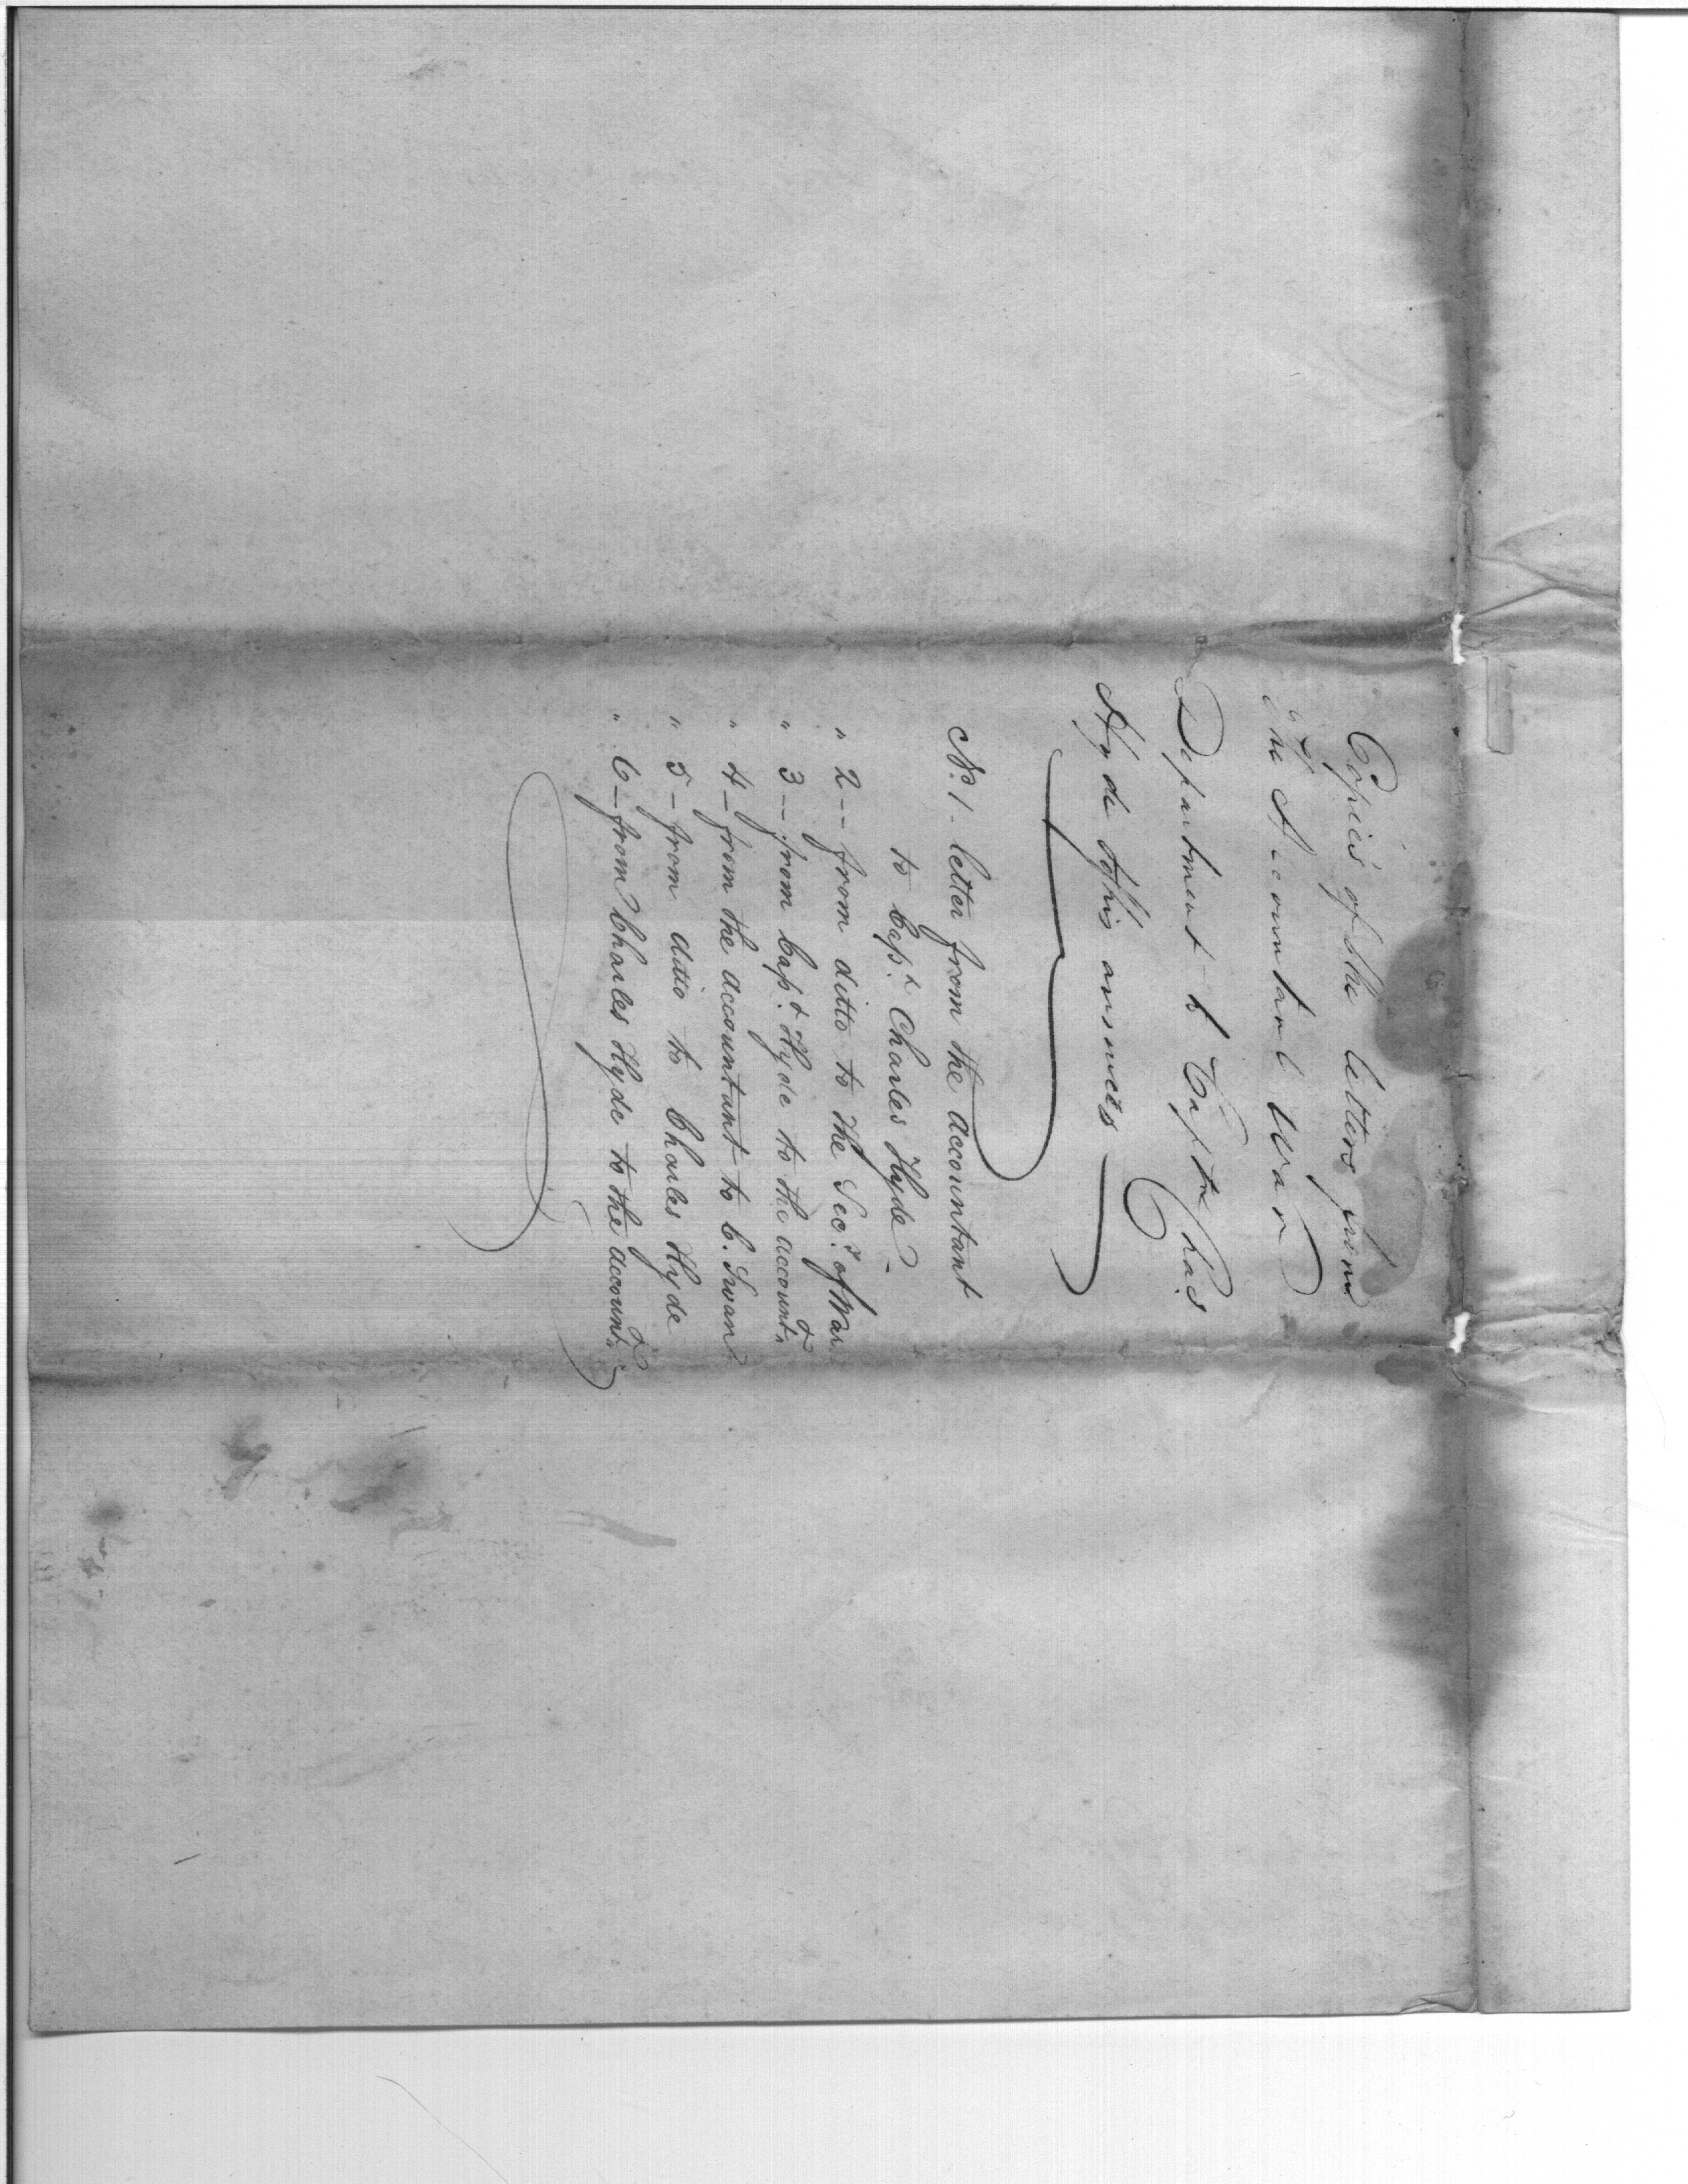 Copies of the letters from
the Accountant War
Department to Captn Chas
Hyde & his answers
No. 1 - letter from the accountant
to Capt. Charles Hyde -
" 2 -- from ditto to the Secy. of War
" 3 -- from Capt. Hyde to the accountt.
" 4 - from the accountant to C. Swan
" 5 - from ditto to Charles Hyde
" 6 - from Charles Hyde to the accountt.